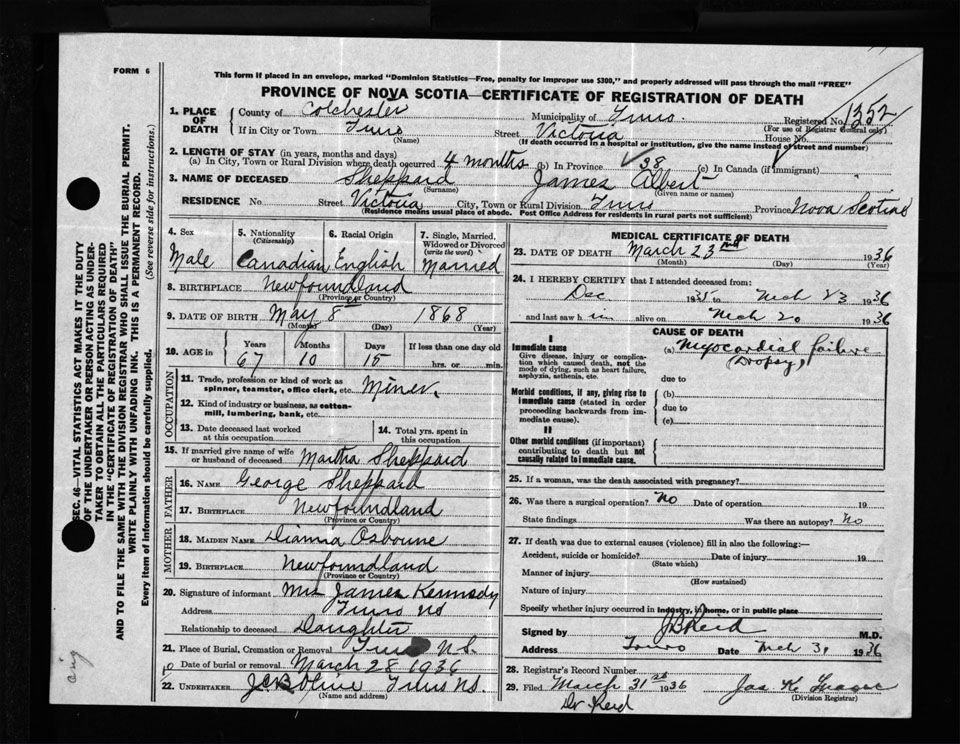 FORM 6
This form if placed in an envelope, marked "Dominion Statistics—Free, penalty for improper use $300," and properly addressed will pass through the mail "FREE"
PROVINCE OF NOVA SCOTIA—CERTIFICATE OF REGISTRATION OF DEATH
1. PLACE OF DEATH County of Colchester Municipality of Truro. Registered No. 1352
(For use of Registrar General only)
If in City or Town Truro Street Victoria House No.
(Name) (If death occurred in a hospital or institution, give the name instead of street and number)
2. LENGTH OF STAY (in years, months and days)
(a) In City, Town or Rural Division where death occurred 4 months (b) In Province 38 (c) In Canada (if immigrant)
3. NAME OF DECEASED Sheppard James Albert
(Surname) (Given name or names)
RESIDENCE No Street Victoria City, Town or Rural Division Truro Province Nova Scotia
(Residence means usual place of abode. Post Office Address for residents in rural parts not sufficient)
4. Sex 5. Nationality (Citizenship) 6. Racial Origin 7. Single, Married, Widowed or Divorced (write the word)
Male Canadian English Married
8. BIRTHPLACE Newfoundland
(Province or Country)
9. DATE OF BIRTH May 8th 1868
(Month) (Day) (Year)
10. AGE in Years Months Days If less than one day old
67 10 15 hrs. or min.
OCCUPATION
11. Trade, profession or kind of work as spinner, teamster, office clerk, etc. Miner.
12. Kind of industry or business, as cotton-mill, lumbering, bank, etc.
13. Date deceased last worked at this occupation 14. Total yrs. spent in this occupation
15. If married give name of wife or husband of deceased Martha Sheppard
FATHER
16. NAME George Sheppard
17. BIRTHPLACE Newfoundland
(Province or Country)
MOTHER
18. MAIDEN NAME Osbourne
19. BIRTHPLACE Newfoundland
(Province or Country)
20. Signature of informant Mrs James Kennedy
Address Truro NS
Relationship to deceased Daughter
21. Place of Burial, Cremation or Removal Truro N.S.
Date of burial or removal March 28 1936
22. UNDERTAKER Truro NS.
(Name and address)
MEDICAL CERTIFICATE OF DEATH
23. DATE OF DEATH March 23rd 1936
(Month) (Day) (Year)
24. I HEREBY CERTIFY that I attended deceased from:
Dec 1935 to Mch 23 1936
and last saw him alive on Mch 20 1936
CAUSE OF DEATH
I
Immediate cause (a) Myocardial failure
Give disease, injury or complication which caused death, not the mode of dying, such as heart failure, asphyxia, asthenia, etc. (Dropsy)
due to
Morbid conditions, if any, giving rise to immediate cause (stated in order proceeding backwards from immediate cause). (b)
due to
(c)
II
Other morbid conditions (if important) contributing to death but not causally related to immediate cause.
25. If a woman, was the death associated with pregnancy?
26. Was there a surgical operation? No Date of operation 19
State findings Was there an autopsy? No
27. If death was due to external causes (violence) fill in also the following:—
Accident, suicide or homicide? Date of injury 19
(State which)
Manner of injury
(How sustained)
Nature of injury
Specify whether injury occurred in industry, in home, or in public place
Signed by M.D.
Address Truro Date Mch 31 1936
28. Registrar's Record Number
29. Filed March 31st 1936
(Division Registrar)
Dr Reid
SEC. 46—VITAL STATISTICS ACT MAKES IT THE DUTY
OF THE UNDERTAKER OR PERSON ACTING AS UNDER-
TAKER TO OBTAIN ALL THE PARTICULARS REQUIRED
IN THE "CERTIFICATE OF REGISTRATION OF DEATH"
AND TO FILE THE SAME WITH THE DIVISION REGISTRAR WHO SHALL ISSUE THE BURIAL PERMIT.
WRITE PLAINLY WITH UNFADING INK. THIS IS A PERMANENT RECORD.
Every item of information should be carefully supplied. (See reverse side for instructions.)